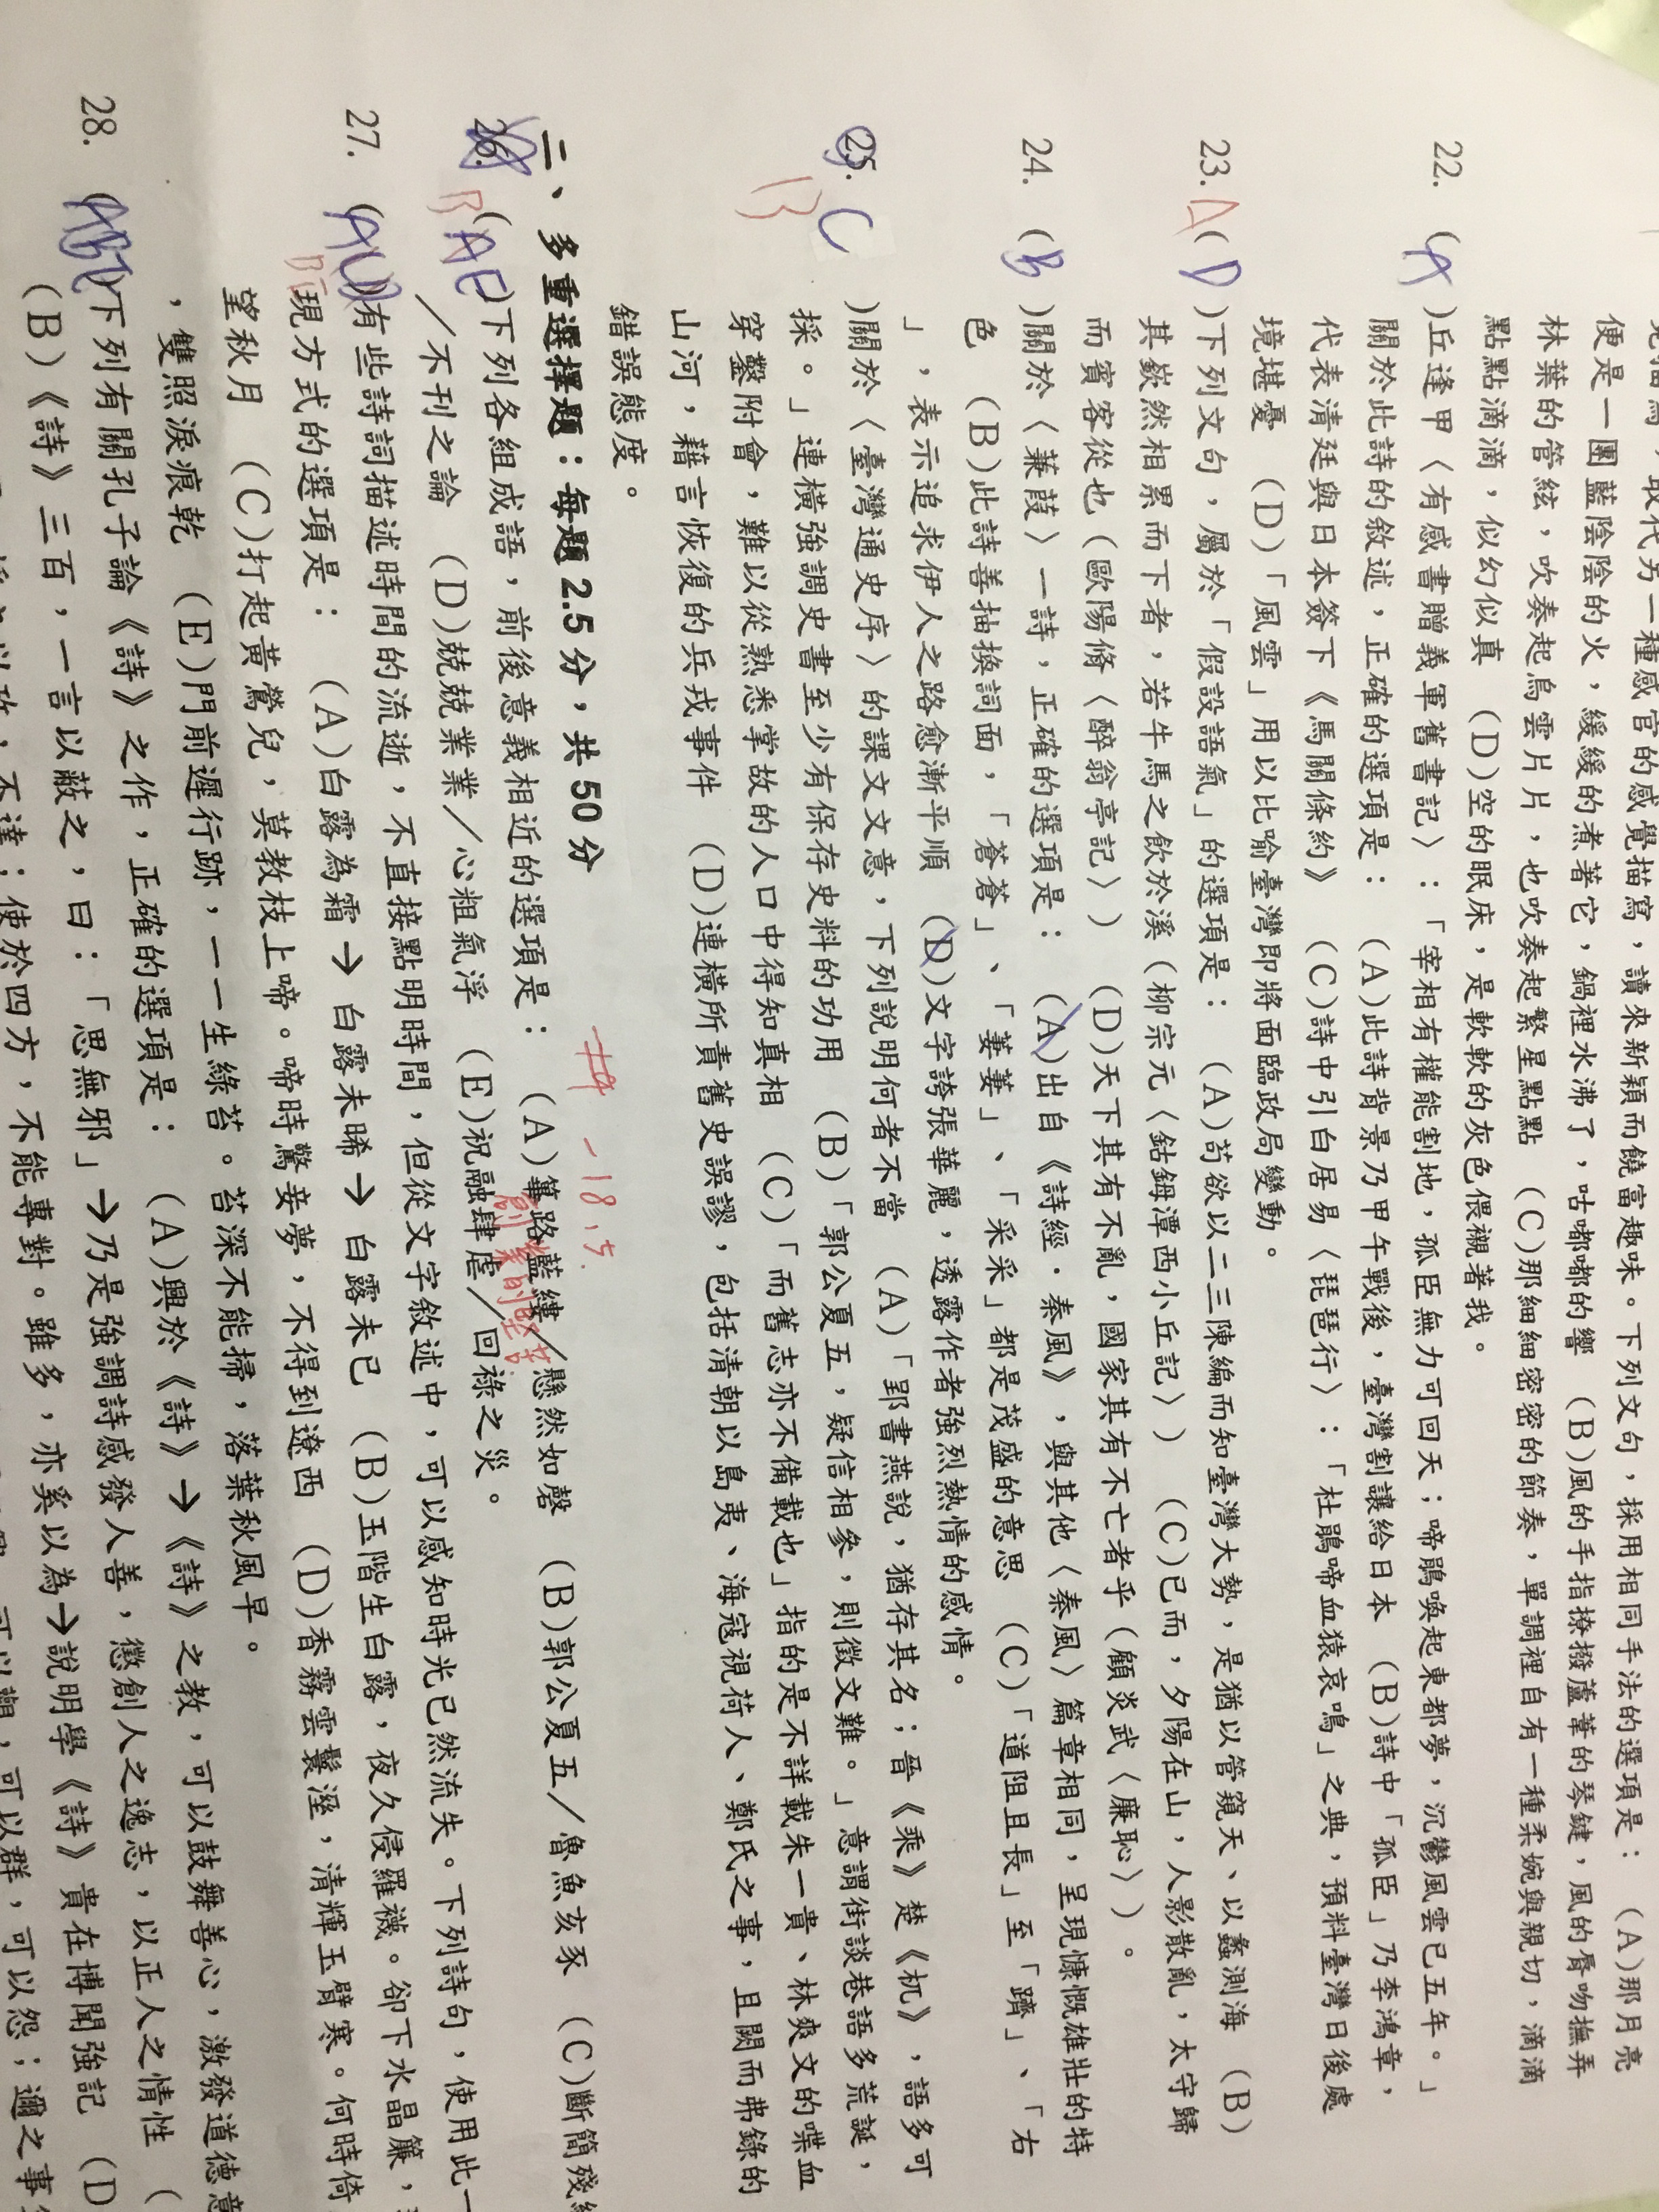 見描寫，取代另一種感官的感覺描寫，讀來新穎而饒富趣味。下列文句，採用相同手法的選項是： (A)那月亮
便是一團藍陰陰的火，緩緩的煮著它，鍋裡水沸了，咕嘟嘟的響 (B)風的手指撩撥蘆葦的琴鍵，風的唇吻撫弄
林葉的管絃，吹奏起烏雲片片，也吹奏起繁星點點 (C)那細細密密的節奏，單調裡自有一種柔婉與親切，滴滴
點點滴滴，似幻似真 (D)空的眠床，是軟軟的灰色偎襯著我。
22. (A)丘逢甲〈有感書贈義軍舊書記〉：「宰相有權能割地，孤臣無力可回天；啼鵑喚起東都夢，沉鬱風雲已五年。」
關於此詩的敘述，正確的選項是： (A)此詩背景乃甲午戰後，臺灣割讓給日本 (B)詩中「孤臣」乃李鴻章，
代表清廷與日本簽下《馬關條約》 (C)詩中引白居易〈琵琶行〉：「杜鵑啼血猿哀鳴」之典，預料臺灣日後處
境堪憂 (D)「風雲」用以比喻臺灣即將面臨政局變動。
23. A (D)下列文句，屬於「假設語氣」的選項是： (A)苟欲以二三陳編而知臺灣大勢，是猶以管窺天、以蠡測海 (B)
其嶔然相累而下者，若牛馬之飲於溪（柳宗元〈鈷鉧潭西小丘記〉） (C)已而，夕陽在山，人影散亂，太守歸
而賓客從也（歐陽脩〈醉翁亭記〉） (D)天下其有不亂，國家其有不亡者乎（顧炎武〈廉恥〉）。
24. (B)關於〈蒹葭〉一詩，正確的選項是： (A)出自《詩經．秦風》，與其他〈秦風〉篇章相同，呈現慷慨雄壯的特
色 (B)此詩善抽換詞面，「蒼蒼」、「萋萋」、「采采」都是茂盛的意思 (C)「道阻且長」至「躋」、「右
」，表示追求伊人之路愈漸平順 (D)文字誇張華麗，透露作者強烈熱情的感情。
25. C B )關於〈臺灣通史序〉的課文文意，下列說明何者不當 (A)「郢書燕說，猶存其名；晉《乘》楚《杌》，語多可
採。」連橫強調史書至少有保存史料的功用 (B)「郭公夏五，疑信相參，則徵文難。」意謂街談巷語多荒誕，
穿鑿附會，難以從熟悉掌故的人口中得知真相 (C)「而舊志亦不備載也」指的是不詳載朱一貴、林爽文的喋血
山河，藉言恢復的兵戎事件 (D)連橫所責舊史誤謬，包括清朝以島夷、海寇視荷人、鄭氏之事，且闕而弗錄的
錯誤態度。
-18.5
二、多重選擇題：每題2.5分，共50分
26. B (AE)下列各組成語，前後意義相近的選項是： (A)篳路藍縷／懸然如磬 (B)郭公夏五／魯魚亥豕 (C)斷簡殘
創業的堅苦
／不刊之論 (D)兢兢業業／心粗氣浮 (E)祝融肆虐／回祿之災。
27. )有些詩詞描述時間的流逝，不直接點明時間，但從文字敘述中，可以感知時光已然流失。下列詩句，使用此一
現方式的選項是： (A)白露為霜→白露未晞→白露未已 (B)玉階生白露，夜久侵羅襪。卻下水晶簾，
望秋月 (C)打起黃鶯兒，莫教枝上啼。啼時驚妾夢，不得到遼西 (D)香霧雲鬟溼，清輝玉臂寒。何時倚
，雙照淚痕乾 (E)門前遲行跡，一一生綠苔。苔深不能掃，落葉秋風早。
28. )下列有關孔子論《詩》之作，正確的選項是： (A)興於《詩》→《詩》之教，可以鼓舞善心，激發道德意
(B)《詩》三百，一言以蔽之，曰：「思無邪」→乃是強調詩感發人善，懲創人之逸志，以正人之情性 (
不達；使於四方，不能專對。雖多，亦奚以為→說明學《詩》貴在博聞強記 (D
可以觀，可以群，可以怨；邇之事